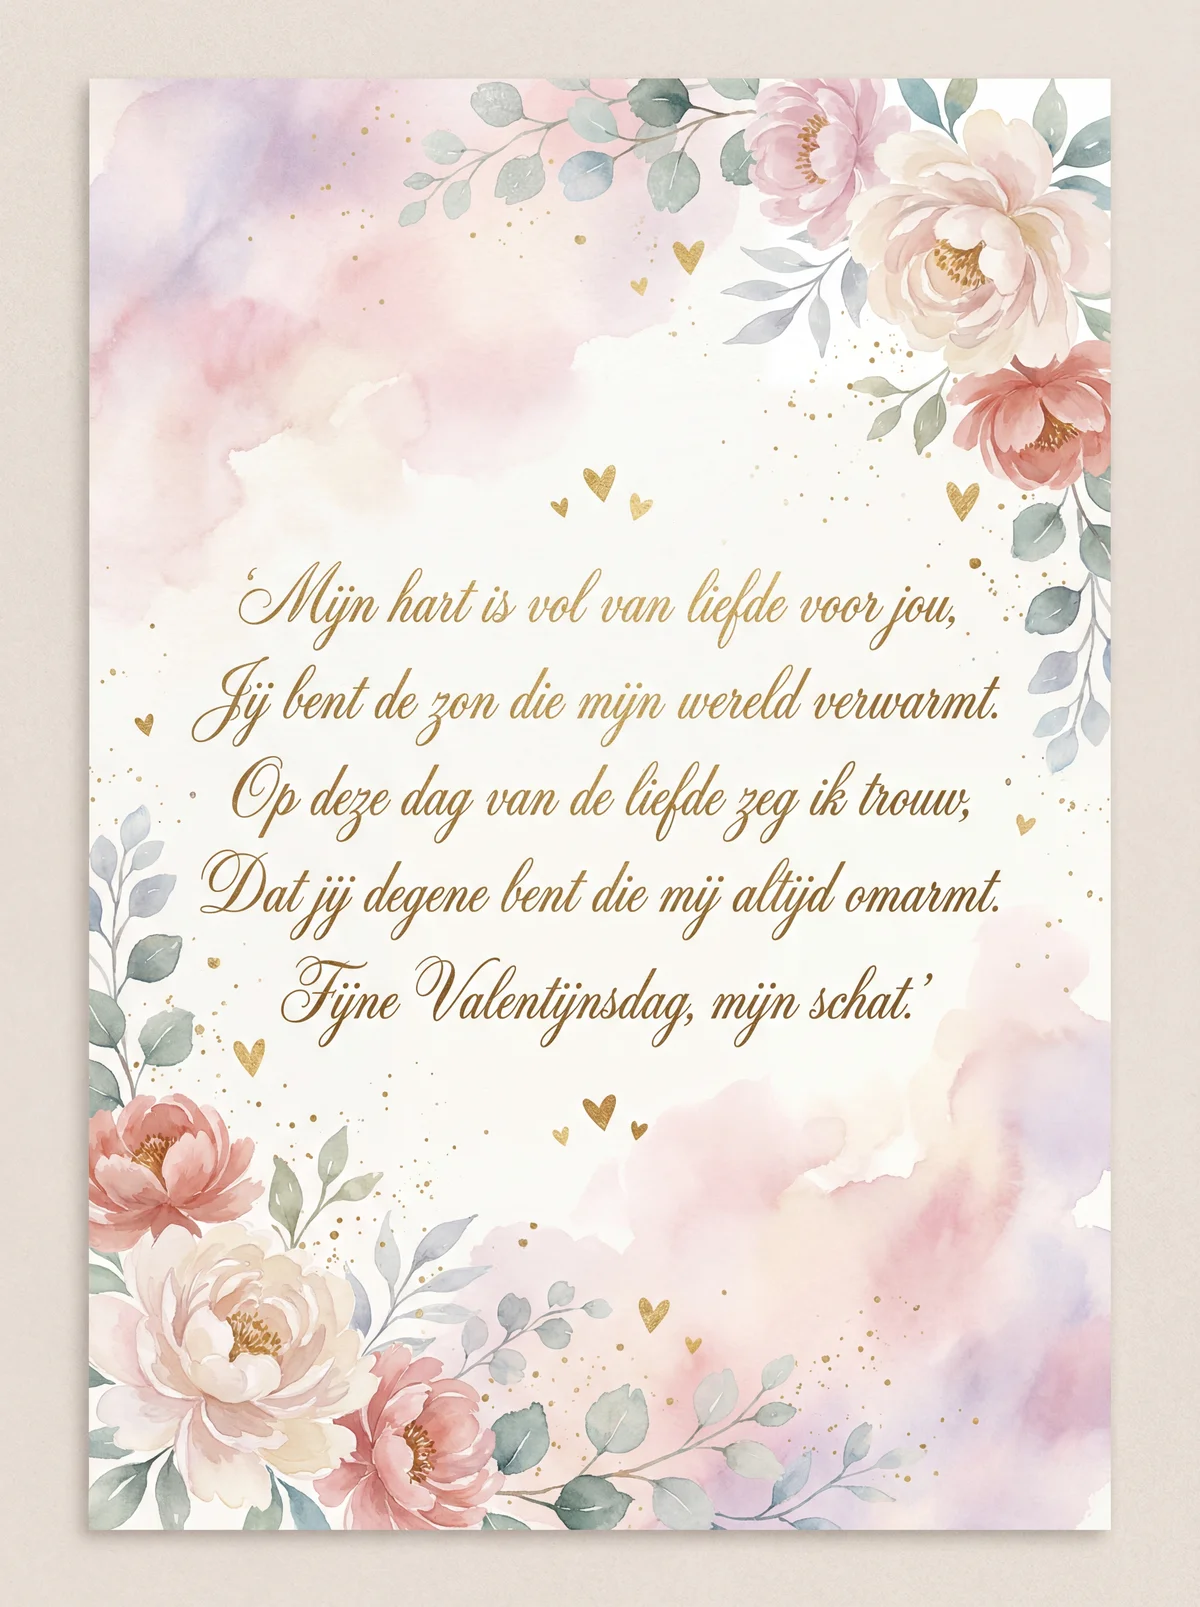 ‘Mijn hart is vol van liefde voor jou,
Jij bent de zon die mijn wereld verwarmt.
Op deze dag van de liefde zeg ik trouw,
Dat jij degene bent die mij altijd omarmt.
Fijne Valentijnsdag, mijn schat.’